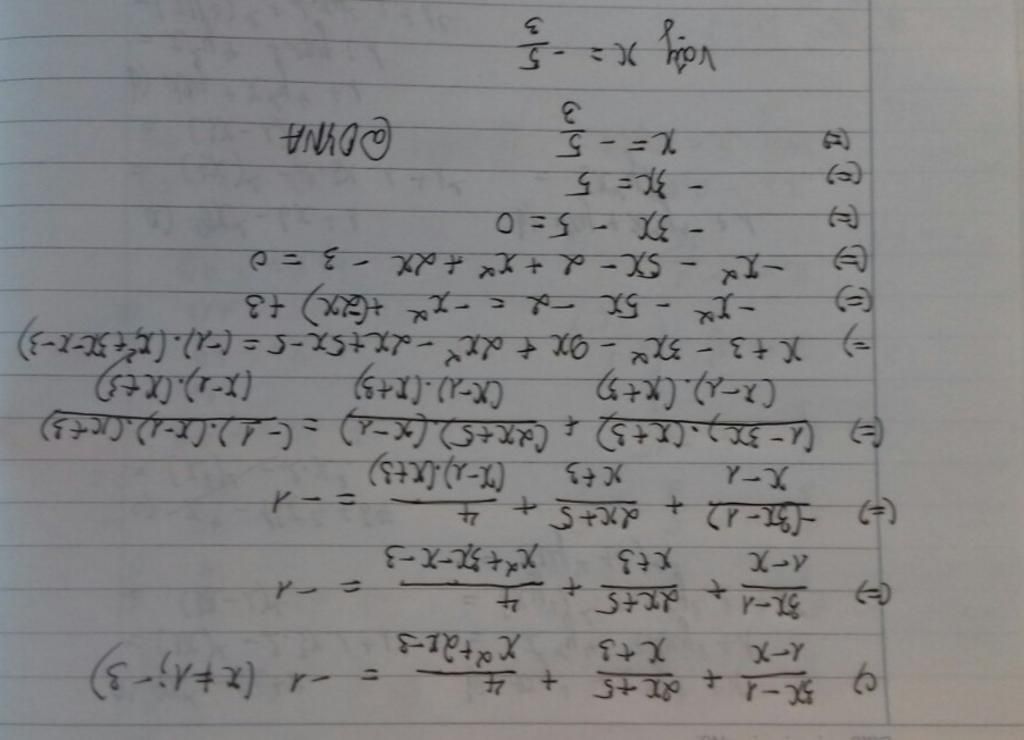 c) \frac{3x-1}{1-x} + \frac{2x+5}{x+3} + \frac{4}{x²+2x-3} = -1 (x≠1;-3)
(=) \frac{3x-1}{1-x} + \frac{2x+5}{x+3} + \frac{4}{x²+3x-x-3} = -1
(=) \frac{-(3x-1)}{x-1} + \frac{2x+5}{x+3} + \frac{4}{(x-1).(x+3)} = -1
(=) \frac{(1-3x).(x+3)}{(x-1).(x+3)} + \frac{(2x+5).(x-1)}{(x-1).(x+3)} = \frac{(-1).(x-1).(x+3)}{(x-1).(x+3)}
=) x+3-3x²-9x+2x²-2x+5x-5=(-1).(x²+3x-x-3)
(=) -x²-5x-2=-x²+(-2x)+3
(=) -x²-5x-2+x²+2x-3=0
(=) -3x-5=0
(=) -3x=5
(=) x=-\frac{5}{3} @DYNA
Vậy x=-\frac{5}{3}